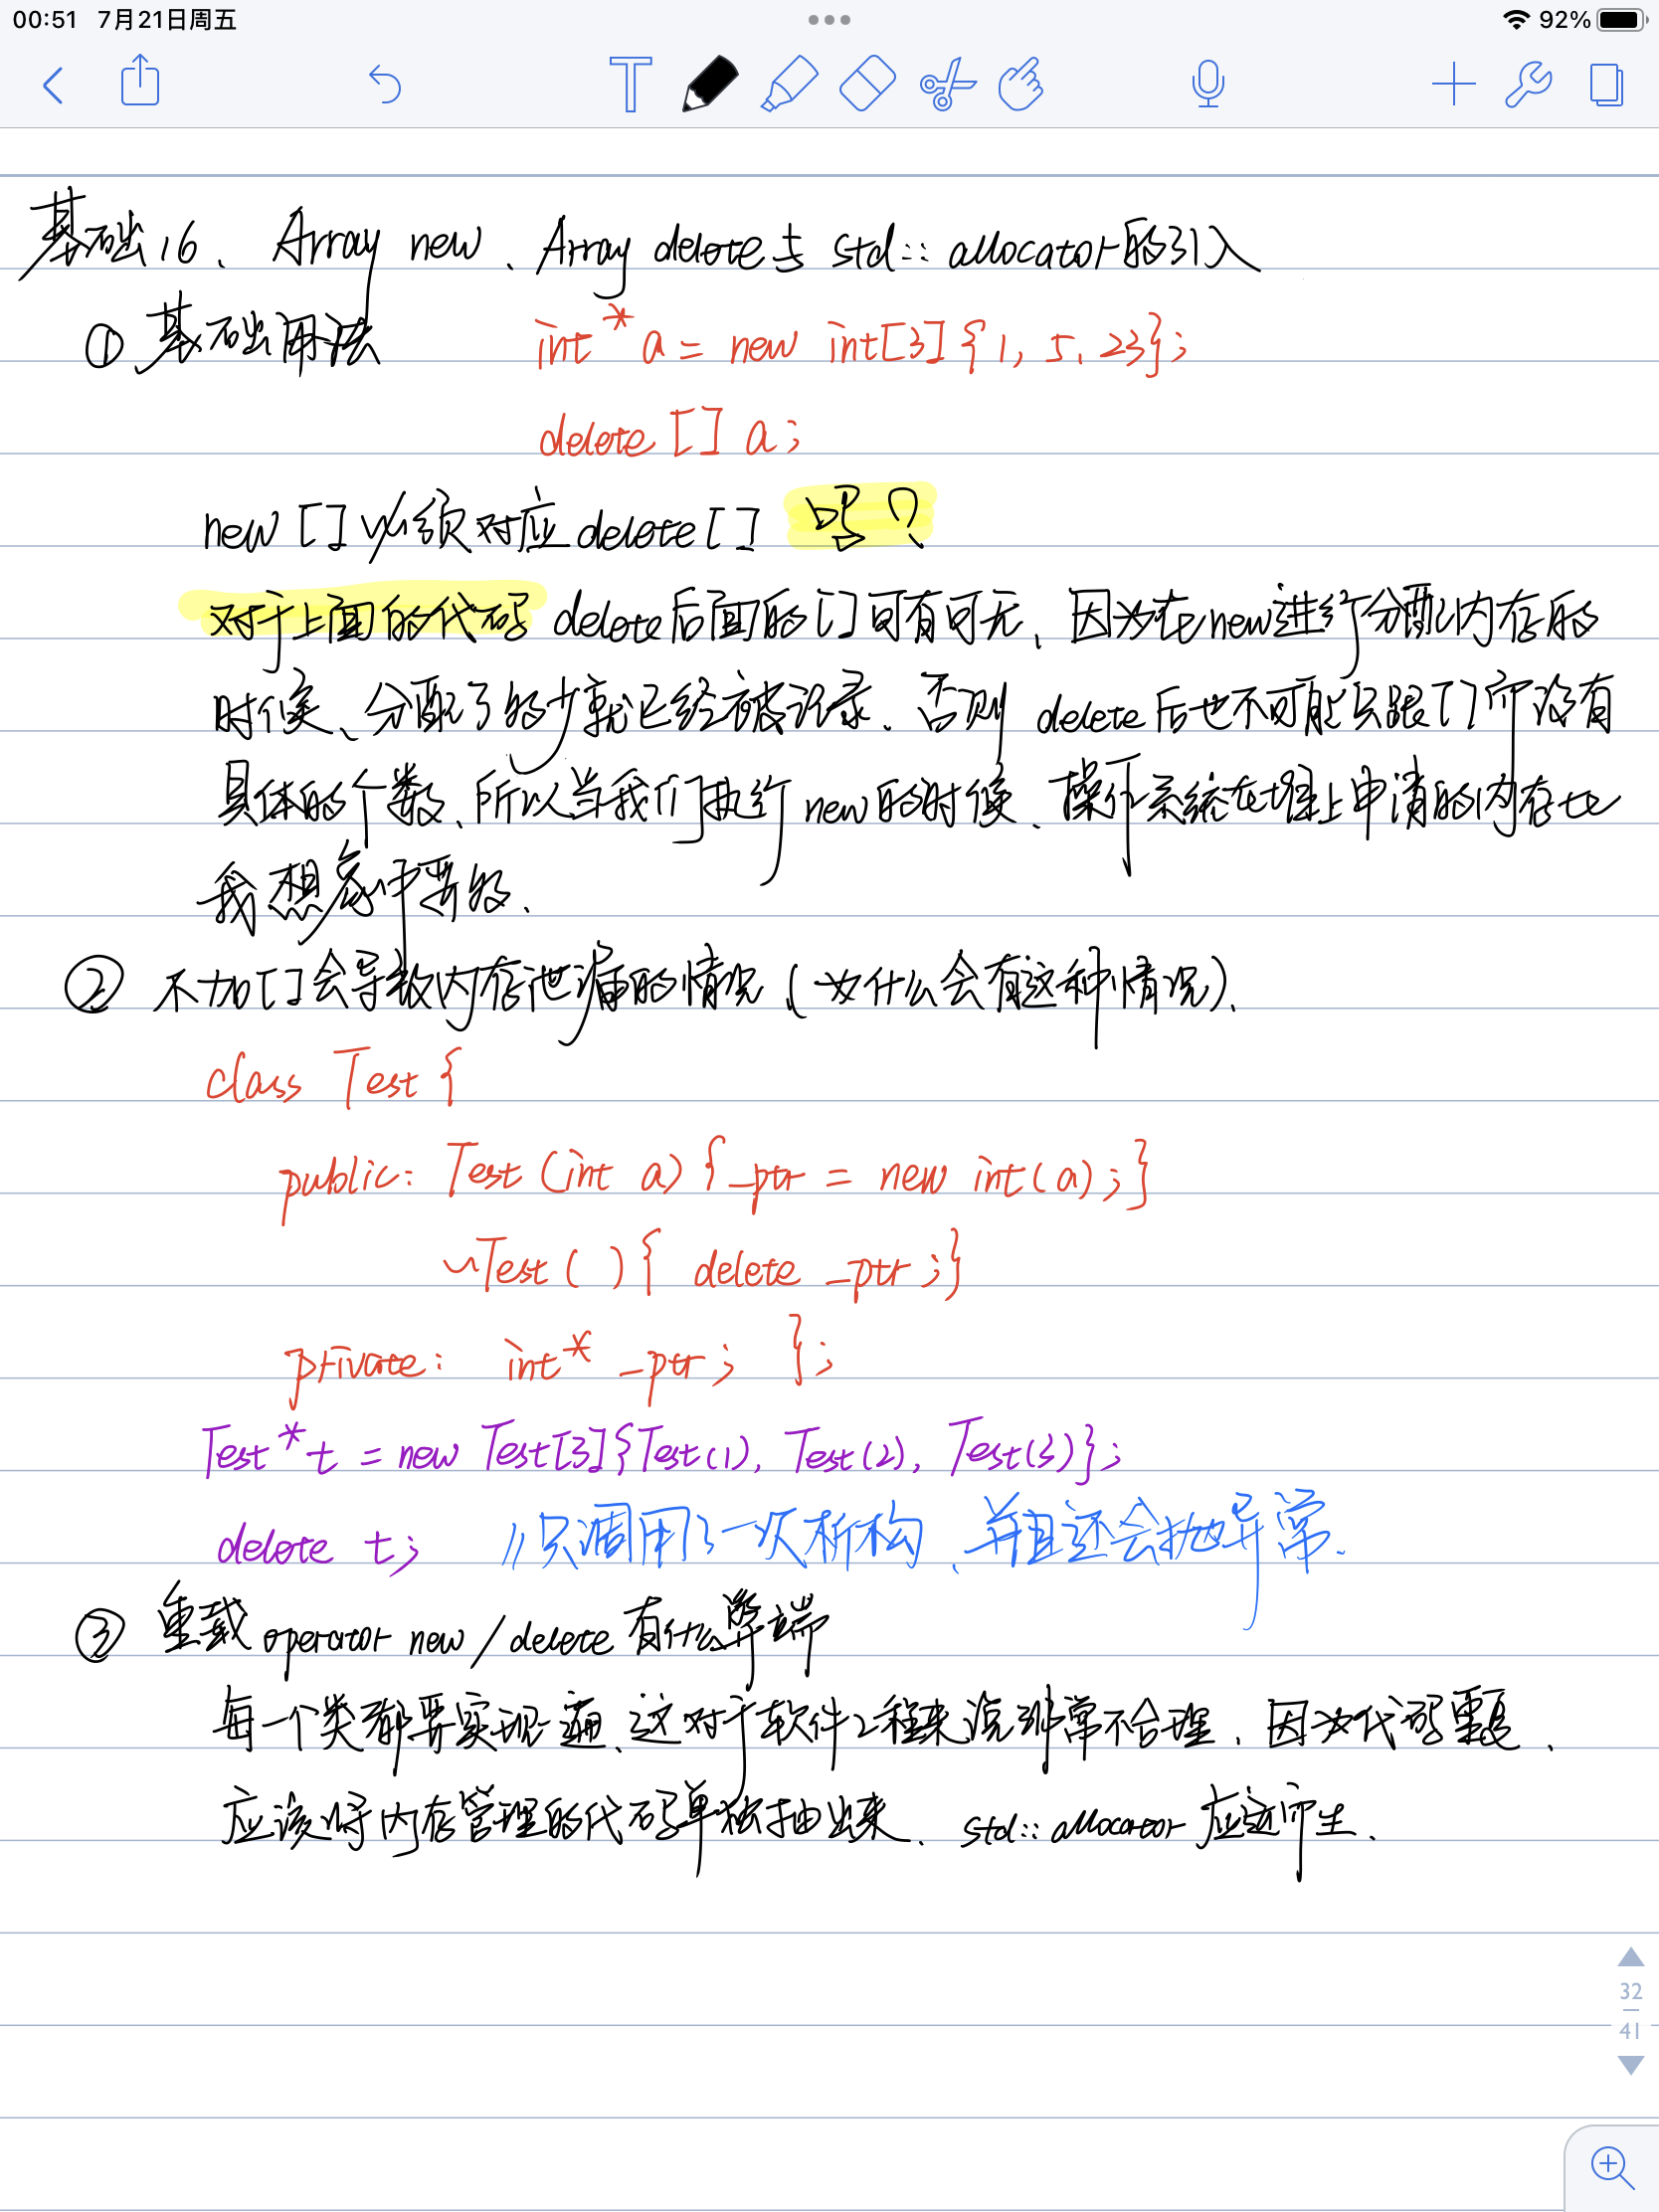 00:51 7月21日周五
92%
基础16、Array new、Array delete与 std::allocator的引入
① 基础用法 int* a = new int[3]{1, 5, 23};
delete [] a;
new []必须对应delete[] 吗?
对于上面的代码 delete后面的[]可有可无、因为在new进行分配内存的
时候、分配了多少就已经被记录、否则 delete后也不可能只跟[]而没有
具体的个数、所以当我们执行new的时候、操作系统在堆上申请的内存比
我想象中要多、
② 不加[]会导致内存泄漏的情况(为什么会有这种情况)、
class Test {
public: Test (int a) {_ptr = new int(a);}
~Test ( ){ delete _ptr;}
private: int* _ptr; };
Test* t = new Test[3]{Test(1), Test(2), Test(3)};
delete t; //只调用了一次析构、并且还会抛异常、
③ 重载 operator new/delete 有什么弊端
每一个类都要实现一遍、这对于软件工程来说非常不合理、因为代码重复、
应该将内存管理的代码单独抽出来、std::allocator 应运而生、
32
41